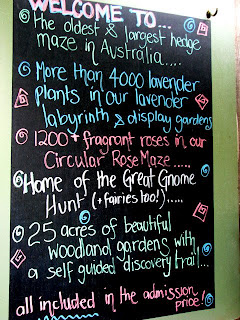 WELCOME TO...
The oldest & largest hedge
maze in Australia.....
More than 4000 lavender
Plants in our lavender
labyrinth & display gardens
1200+ fragrant roses in our
Circular Rose Maze.....
Home of the Great Gnome
Hunt (+fairies too!).....
25 acres of beautiful
woodland gardens with
a self guided discovery trail...
all included in the admission
price!